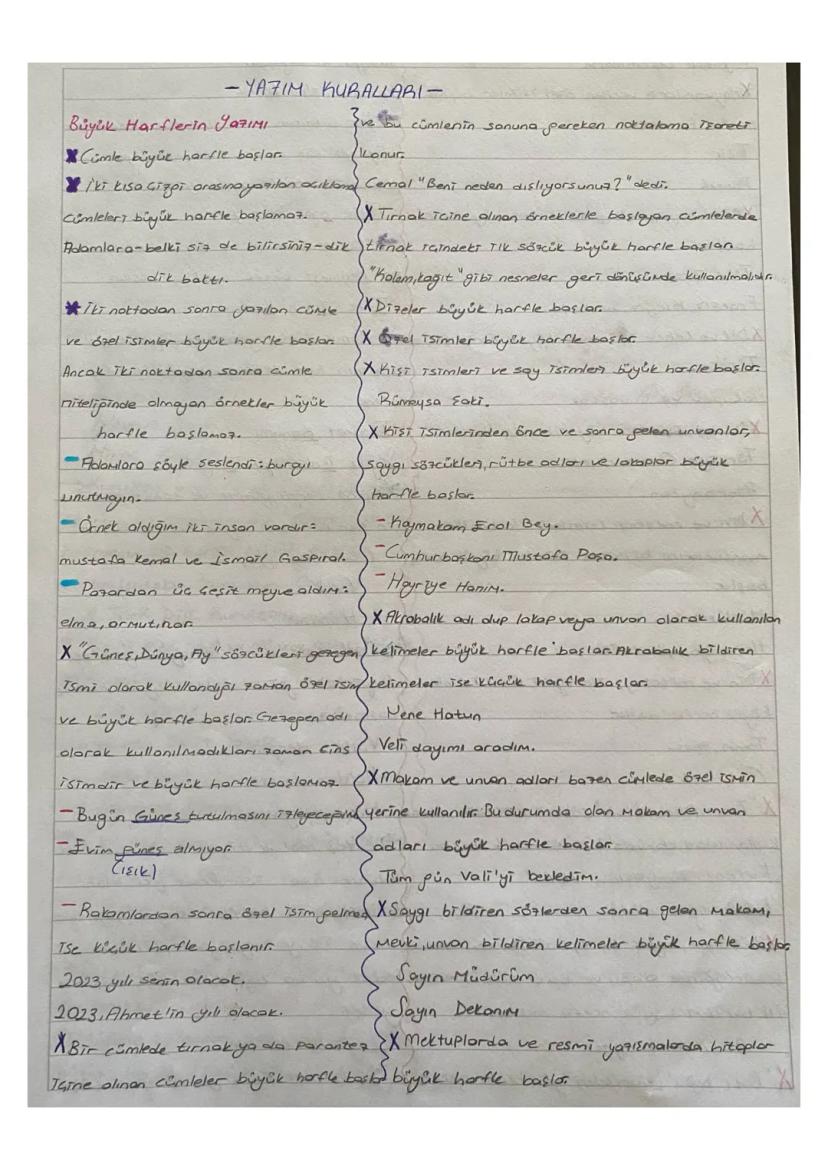 -YAZIM KURALLARI-
Büyük Harflerin Yazımı
X Cümle büyük harfle başlar.
X İki kısa çizgi arasına yazılan açıklama
cümleleri büyük harfle başlamaz.
Adamlara-belki siz de bilirsiniz-dik
dik baktı.
X İki noktadan sonra yazılan cümle
ve özel isimler büyük harfle başlar.
Ancak iki noktadan sonra cümle
niteliğinde olmayan örnekler büyük
harfle başlamaz.
- Adamlara şöyle seslendi: burayı
unutmayın.
- Örnek aldığım iki insan vardır:
mustafa kemal ve İsmail Gaspıralı.
- Pazardan üç çeşit meyve aldım:
elma, armut, nar.
X "Güneş, Dünya, Ay" sözcükleri gezegen
ismi olarak kullandığı zaman özel isim
ve büyük harfle başlar. Gezegen adı
olarak kullanılmadıkları zaman cins
isimdir ve büyük harfle başlamaz.
- Bugün Güneş tutulmasını izleyeceğim
- Evim güneş almıyor.
(ışık)
- Rakamlardan sonra özel isim gelmez
ise küçük harfle başlanır.
2023 yılı senin olacak.
2023, Ahmet'in yılı olacak.
X Bir cümlede tırnak ya da parantez
içine alınan cümleler büyük harfle başlar
ve bu cümlenin sonuna gereken noktalama işareti
konur.
Cemal "Beni neden dışlıyorsunuz?" dedi.
X Tırnak içine alınan örneklerle başlayan cümlelerde
tırnak içindeki ilk sözcük büyük harfle başlar.
"Kalem, kağıt" gibi nesneler geri dönüşümde kullanılmalıdır.
X Dizeler büyük harfle başlar.
X Özel isimler büyük harfle başlar.
X Kişi isimleri ve soy isimleri büyük harfle başlar.
Rümeysa Saki.
X Kişi isimlerinden önce ve sonra gelen unvanlar,
saygı sözcükleri, rütbe adları ve lakaplar büyük
harfle başlar.
- Kaymakam Erol Bey.
- Cumhurbaşkanı Mustafa Paşa.
- Hayriye Hanım.
X Akrabalık adı dup lakap veya unvan olarak kullanılan
kelimeler büyük harfle başlar. Akrabalık bildiren
kelimeler ise küçük harfle başlar.
Nene Hatun
Veli dayımı aradım.
X Makam ve unvan adları bazen cümlede özel ismin
yerine kullanılır. Bu durumda olan makam ve unvan
adları büyük harfle başlar.
Tüm gün Vali'yi bekledim.
X Saygı bildiren sözlerden sonra gelen makam,
mevki, unvan bildiren kelimeler büyük harfle başlar.
Sayın Müdürüm
Sayın Dekanım
X Mektuplarda ve resmi yazışmalarda hitaplar
büyük harfle başlar.